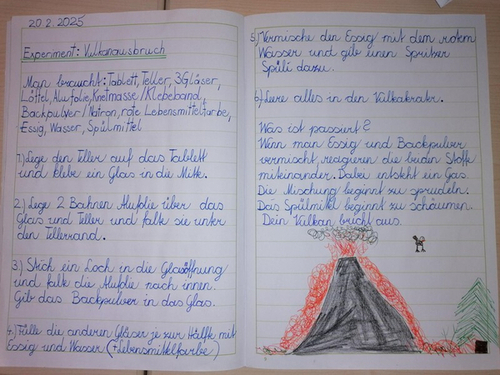 20.2.2025
Experiment: Vulkanausbruch
Man braucht: Tablett, Teller, 3 Gläser,
Löffel, Alufolie, Knetmasse/Klebeband,
Backpulver/Natron, rote Lebensmittelfarbe,
Essig, Wasser, Spülmittel
1.) Lege den Teller auf das Tablett
und klebe ein Glas in die Mitte.
2.) Lege 2 Bahnen Alufolie über das
Glas und Teller und falte sie unter
den Tellerrand.
3.) Stich ein Loch in die Glasöffnung
und falte die Alufolie nach innen.
Gib das Backpulver in das Glas.
4.) Fülle die anderen Gläser je zur Hälfte mit
Essig und Wasser (+Lebensmittelfarbe)
5.) Vermische den Essig mit dem rotem
Wasser und gib einen Spritzer
Spüli dazu.
6.) Leere alles in den Vulkakrater.
Was ist passiert?
Wenn man Essig und Backpulver
vermischt, reagieren die beiden Stoffe
miteinander. Dabei entsteht ein Gas.
Die Mischung beginnt zu sprudeln.
Das Spülmittel beginnt zu schäumen.
Dein Vulkan bricht aus.